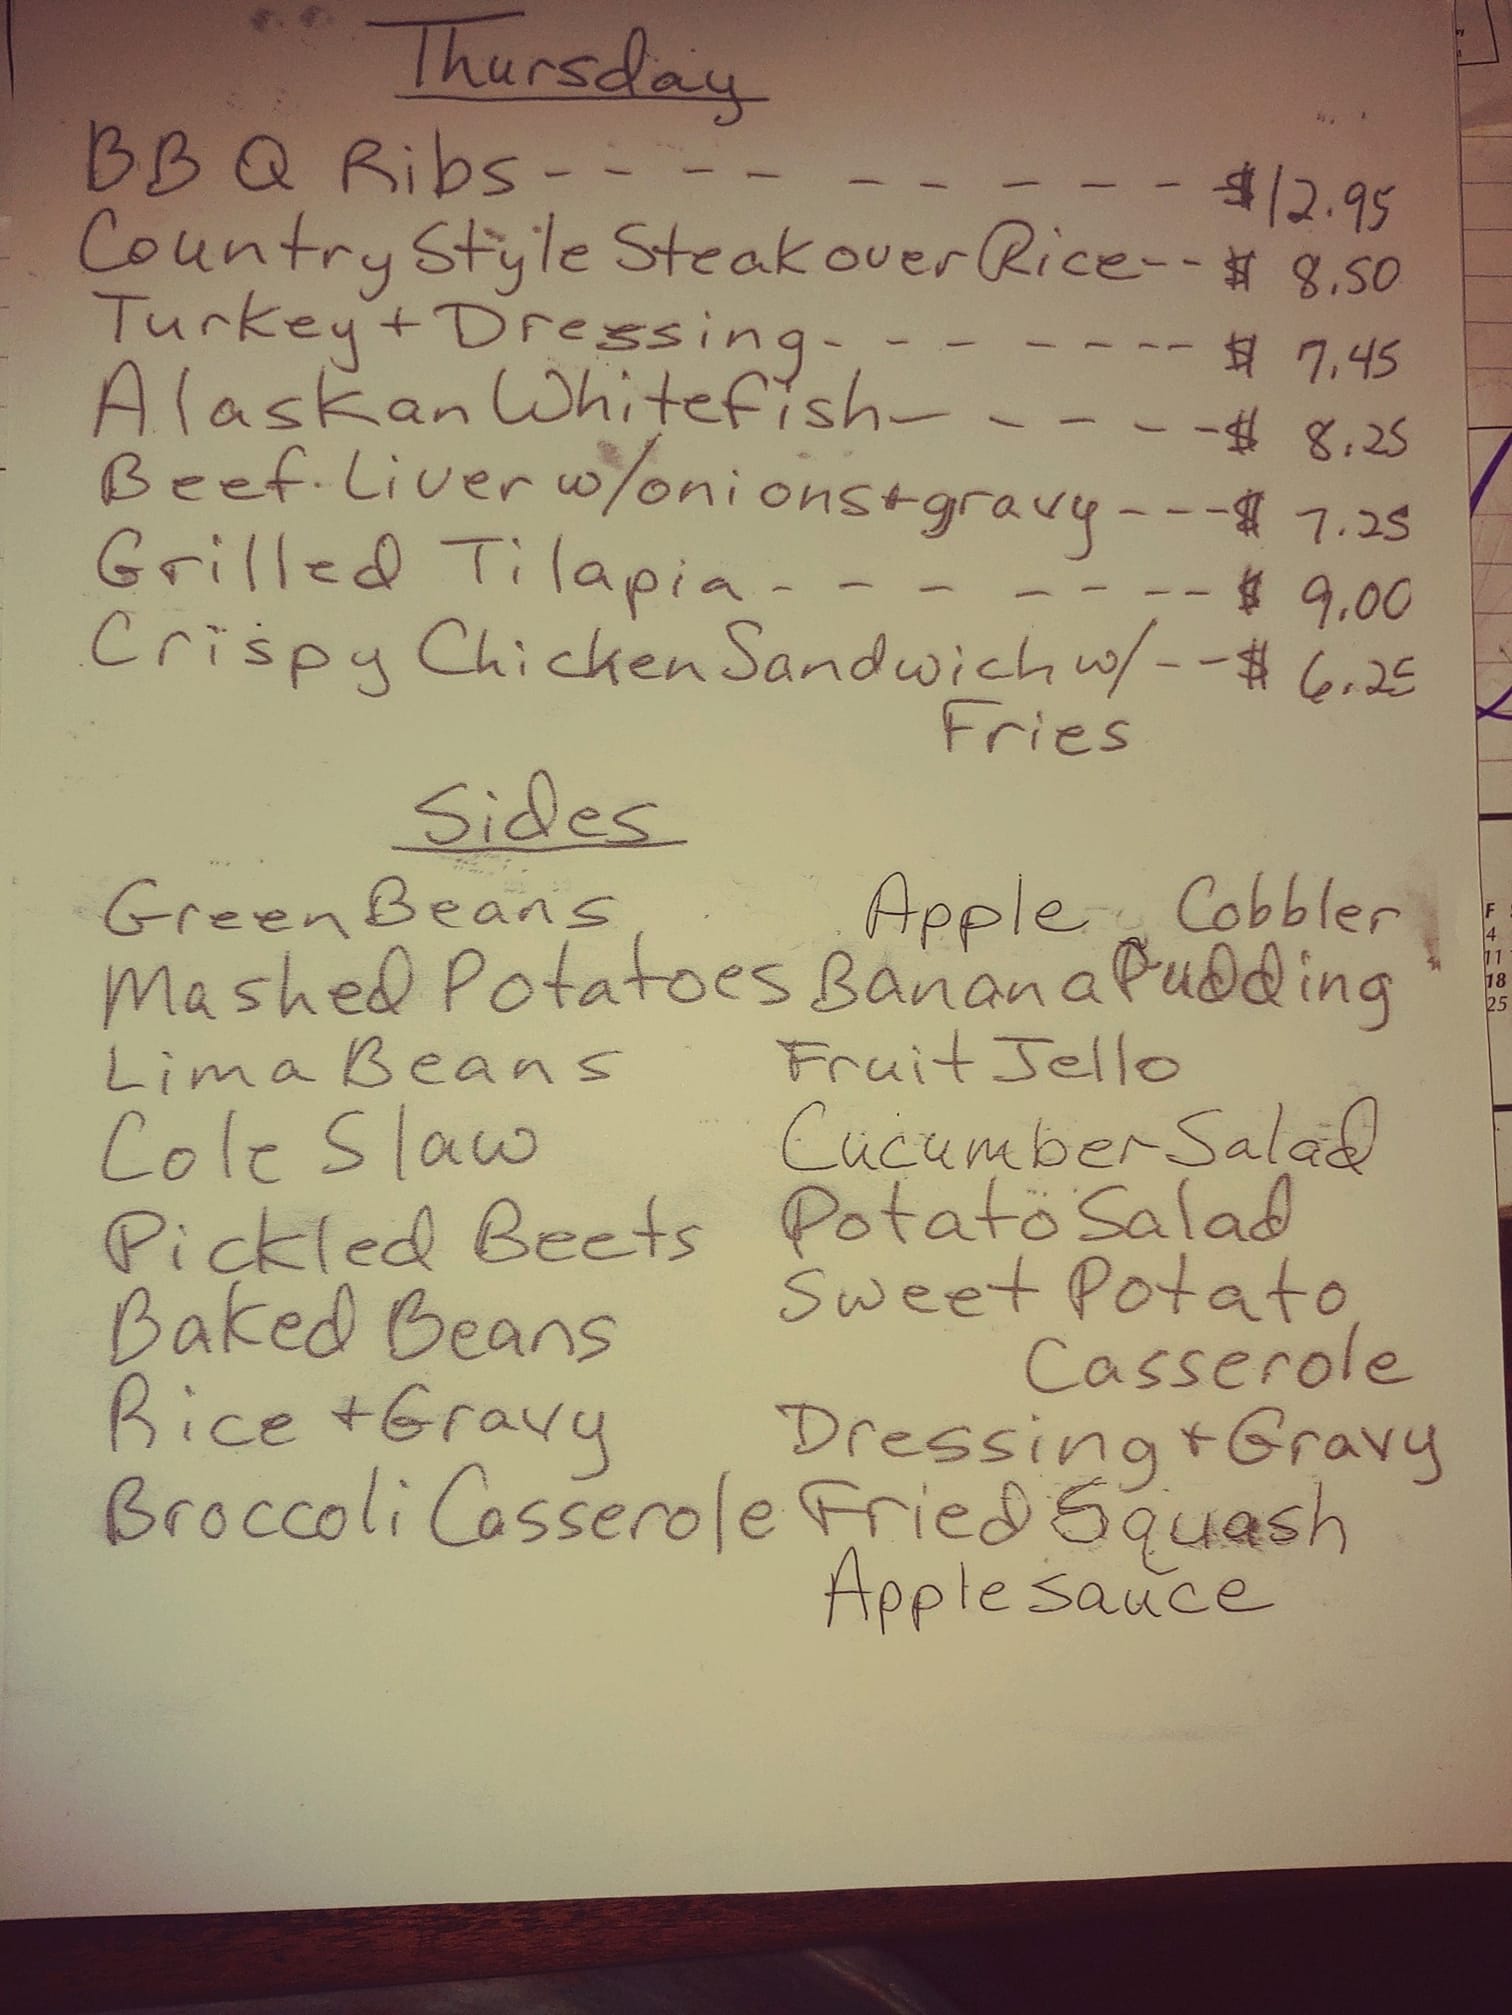 Thursday
BBQ Ribs - - - - - - - - - $12.95
Country Style Steak over Rice -- $ 8.50
Turkey + Dressing - - - - - - - $ 7.45
Alaskan Whitefish - - - - - $ 8.25
Beef Liver w/onions + gravy --- $ 7.25
Grilled Tilapia - - - - - - - $ 9.00
Crispy Chicken Sandwich w/ -- $ 6.25
Fries
Sides
Green Beans
Mashed Potatoes
Lima Beans
Cole Slaw
Pickled Beets
Baked Beans
Rice + Gravy
Broccoli Casserole
Apple Cobbler
Banana Pudding
Fruit Jello
Cucumber Salad
Potato Salad
Sweet Potato
Casserole
Dressing + Gravy
Fried Squash
Applesauce
F
4
11
18
25